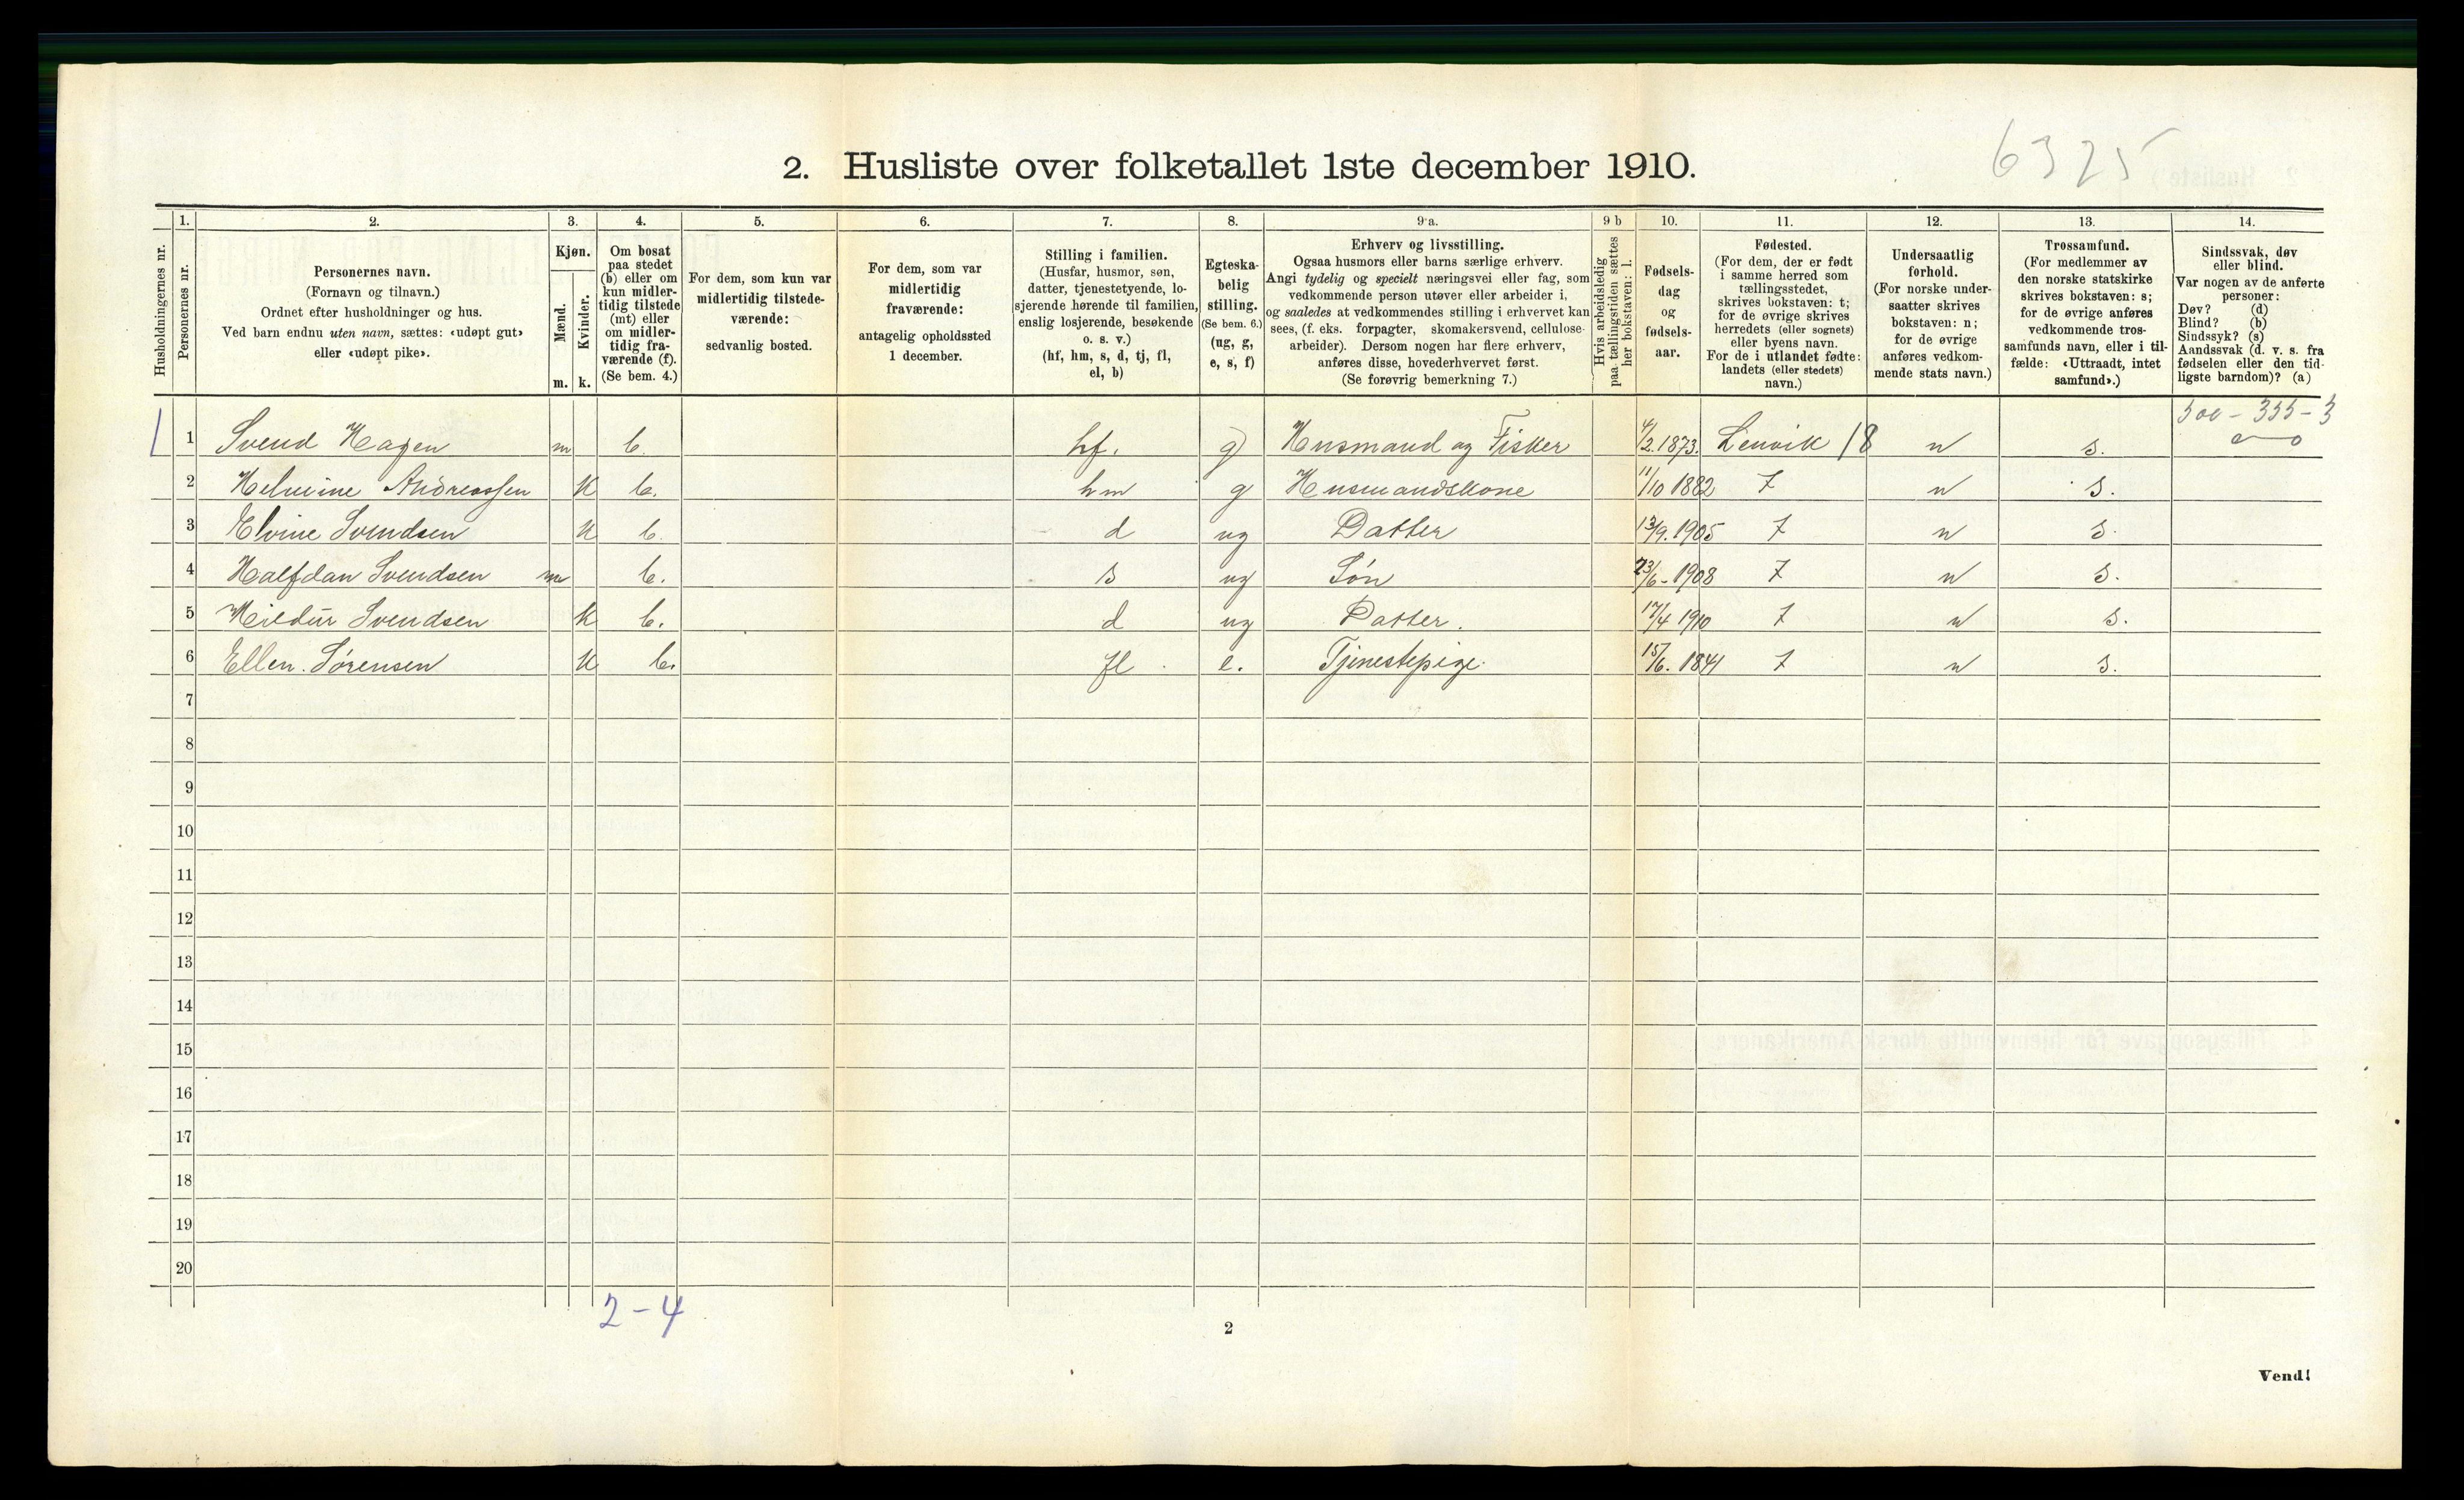 6325
2. Husliste over folketallet 1ste december 1910.
Husholdningernes nr.
1.
Personernes nr.
2.
Personernes navn.
(Fornavn og tilnavn.)
Ordnet efter husholdninger og hus.
Ved barn endnu uten navn, sættes: «udøpt gut»
eller «udøpt pike».
3.
Kjøn.
Mænd.
Kvinder.
m.
k.
4.
Om bosat
paa stedet
(b) eller om
kun midler-
tidig tilstede
(mt) eller
om midler-
tidig fra-
værende (f).
(Se bem. 4.)
5.
For dem, som kun var
midlertidig tilstede-
værende:
sedvanlig bosted.
6.
For dem, som var
midlertidig
fraværende:
antagelig opholdssted
1 december.
7.
Stilling i familien.
(Husfar, husmor, søn,
datter, tjenestetyende, lo-
sjerende hørende til familien,
enslig losjerende, besøkende
o. s. v.)
(hf, hm, s, d, tj, fl,
el, b)
8.
Egteska-
belig
stilling.
(Se bem. 6.)
(ug, g,
e, s, f)
9 a.
Erhverv og livsstilling.
Ogsaa husmors eller barns særlige erhverv.
Angi tydelig og specielt næringsvei eller fag, som
vedkommende person utøver eller arbeider i,
og saaledes at vedkommendes stilling i erhvervet kan
sees, (f. eks. forpagter, skomakersvend, cellulose-
arbeider). Dersom nogen har flere erhverv,
anføres disse, hovederhvervet først.
(Se forøvrig bemerkning 7.)
9 b
Hvis arbeidsledig
paa tællingstiden sættes
her bokstaven: l.
10.
Fødsels-
dag
og
fødsels-
aar.
11.
Fødested.
(For dem, der er født
i samme herred som
tællingsstedet,
skrives bokstaven: t;
for de øvrige skrives
herredets (eller sognets)
eller byens navn.
For de i utlandet fødte:
landets (eller stedets)
navn.)
12.
Undersaatlig
forhold.
(For norske under-
saatter skrives
bokstaven: n;
for de øvrige
anføres vedkom-
mende stats navn.)
13.
Trossamfund.
(For medlemmer av
den norske statskirke
skrives bokstaven: s;
for de øvrige anføres
vedkommende tros-
samfunds navn, eller i til-
fælde: «Uttraadt, intet
samfund».)
14.
Sindssvak, døv
eller blind.
Var nogen av de anførte
personer:
Døv? (d)
Blind? (b)
Sindssyk? (s)
Aandssvak (d. v. s. fra
fødselen eller den tid-
ligste barndom)? (a)
500 - 355 - 3
1 Svend Hagen m b. hf. g Husmand og Fisker 4/2.1873. Lenvik 18 n s.
2 Helmine Andreassen K b. hm g Husmandskone 11/10 1882 t n s.
3 Elvine Svendsen K b. d ug Datter 13/9.1905 t n s.
4 Halfdan Svendsen m b. s ug Søn 23/6-1908 t n s.
5 Hildur Svendsen K b. d ug Datter. 17/4 1910 t n s.
6 Ellen. Sørensen K b. fl e. Tjenestepige. 15/6. 1841 t n s.
7
8
9
10
11
12
13
14
15
16
17
18
19
20
2-4
2
Vend!